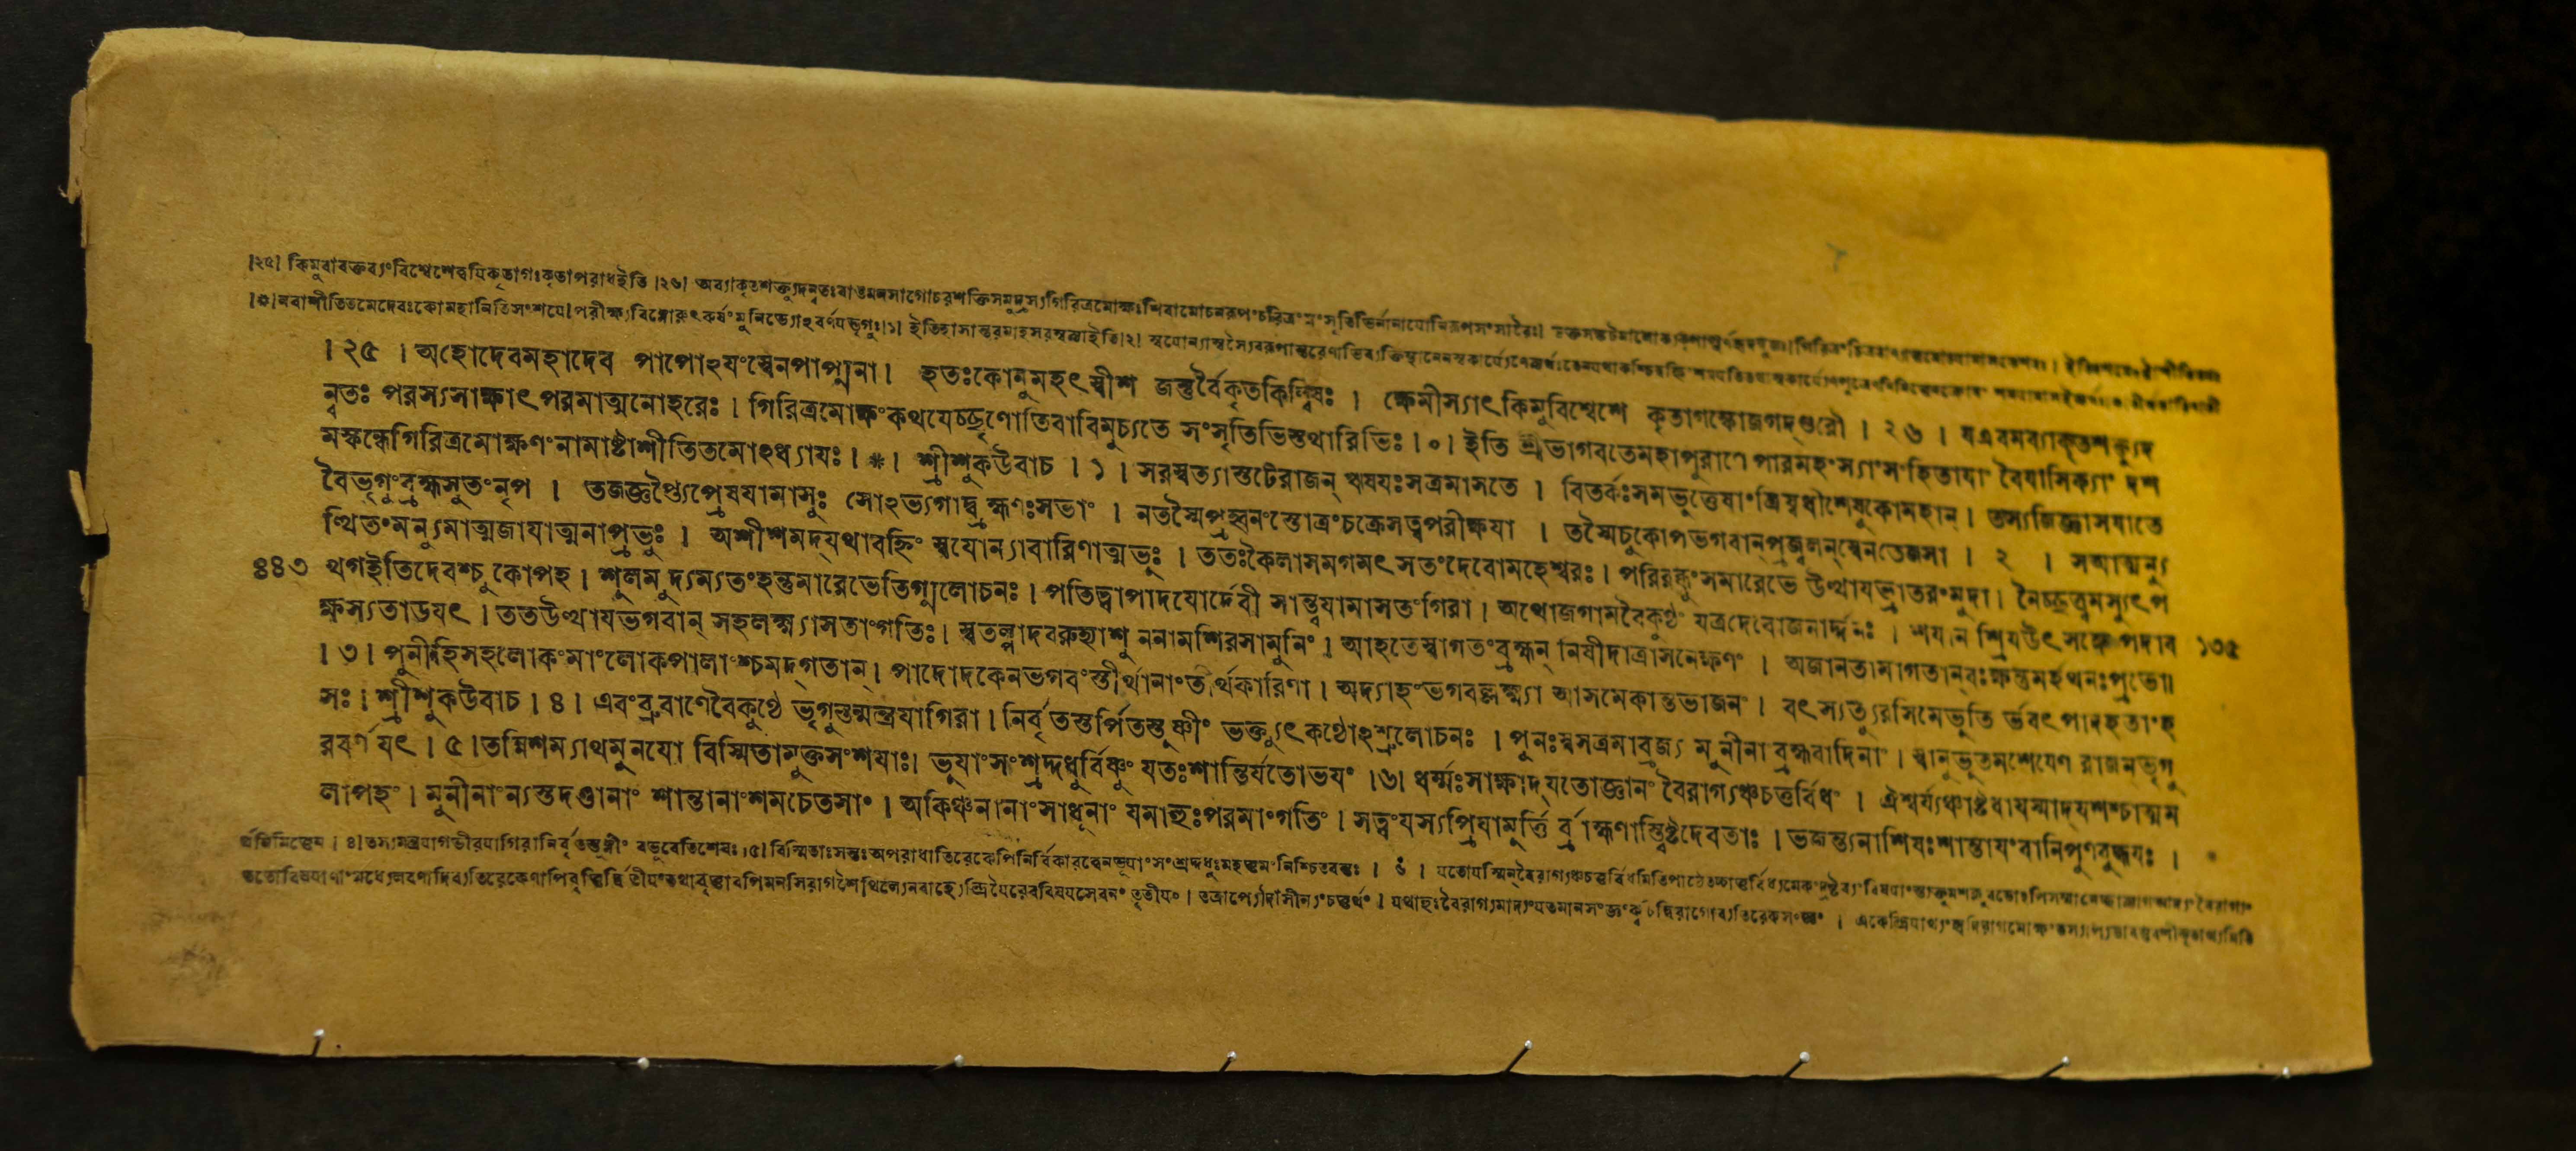 ।২৫। কিমুবাবক্তব্যংবিশ্বেশেত্বয়িকৃতাগঃকৃতাপরাধইতি ।২৬। অব্যাকৃতশক্ত্যুদন্বতঃবাঙমনসাগোচরশক্তিসমুদ্রস্যগিরিত্রমোক্ষঃশিবামোচনরূপংচরিত্রং
।*।নবাশীতিতমেদেবঃকোমহানিতিসংশয়ে।পরীক্ষ্যবিষ্ণোরুৎকর্ষংমুনিভ্যোঽবর্ণয়দ্ভৃগুঃ।১। ইতিহাসান্তরমাহসরস্বত্যাইতি।২।
। ২৫ । অহোদেবমহাদেব পাপোঽয়ংস্বেনপাপ্মনা। হতঃকোনুমহৎস্বীশ জন্তুর্বৈকৃতকিল্বিষঃ । ক্ষেমীস্যাৎকিমুবিশ্বেশে কৃতাগস্কোজগদ্গুরৌ । ২৬ । যএবমব্যাকৃতশক্ত্যুদ
ন্বতঃ পরস্যসাক্ষাৎপরমাত্মনোহরেঃ । গিরিত্রমোক্ষংকথয়েচ্ছৃণোতিবাবিমুচ্যতে সংসৃতিভিস্তথারিভিঃ । ০ । ইতি শ্রীভাগবতেমহাপুরাণে পারমহংস্যাংসংহিতায়াং বৈয়াসিক্যাং দশ
মস্কন্ধেগিরিত্রমোক্ষণংনামাষ্টাশীতিতমোঽধ্যায়ঃ । * । শ্রীশুকউবাচ । ১ । সরস্বত্যাস্তটেরাজন্ ঋষয়ঃসত্রমাসতে । বিতর্কঃসমভূত্তেষাংত্রিষ্বধীশেষুকোমহান্ । তস্যজিজ্ঞাসয়াতে
বৈভৃগুংব্রহ্মসুতংনৃপ । তজ্জ্ঞপ্ত্যৈপ্রেষয়ামাসুঃ সোঽভ্যগাদ্ব্রহ্মণঃসভাং । নতস্মৈপ্রহ্বনংস্তোত্রংচক্রেসত্বপরীক্ষয়া । তস্মৈচুকোপভগবান্প্রজ্বলন্স্বেনতেজসা । ২ । সআত্মন্যু
ত্থিতংমন্যুমাত্মজায়াত্মনাপ্রভুঃ । অশীশমদ্যথাবহ্নিং স্বযোন্যাবারিণাত্মভূঃ । ততঃকৈলাসমগমৎ সতংদেবোমহেশ্বরঃ । পরিরব্ধুংসমারেভে উত্থায়ভ্রাতরংমুদা । নৈচ্ছত্ত্বমস্যুৎপ
৪৪৩ থগইতিদেবশ্চুকোপহ । শূলমুদ্যম্যতংহন্তুমারেভেতিগ্মলোচনঃ । পতিত্বাপাদয়োর্দেবী সান্ত্বয়ামাসতংগিরা । অথোজগামবৈকুণ্ঠং যত্রদেবোজনার্দ্দনঃ । শয়ানং শ্রিয়উৎসঙ্গে পদাব ১৩৫
ক্ষস্যতাডয়ৎ । ততউত্থায়ভগবান্ সহলক্ষ্ম্যাসতাংগতিঃ । স্বতল্পাদবরুহ্যাশু ননামশিরসামুনিং । আহতেস্বাগতংব্রহ্মন্ নিষীদাত্রাসনেক্ষণং । অজানতামাগতান্বঃক্ষন্তুমর্হথনঃপ্রভো॥
। ৩ । পুনীহিসহলোকংমাংলোকপালাংশ্চমদ্গতান্ । পাদোদকেনভগবংস্তীর্থানাংতীর্থকারিণা । অদ্যাহংভগবল্লক্ষ্ম্যা আসমেকান্তভাজনং । বৎস্যত্যুরসিমেভূতি র্ভবৎপাদহতাংহ
সঃ । শ্রীশুকউবাচ । ৪ । এবংব্রুবাণেবৈকুণ্ঠে ভৃগুস্তন্মন্দ্রয়াগিরা । নির্বৃতস্তর্পিতস্তূষ্ণীং ভক্ত্যুৎকণ্ঠোঽশ্রুলোচনঃ । পুনঃস্বসত্রমাব্রজ্য মুনীনাং ব্রহ্মবাদিনাং । স্বানুভূতমশেষেণ রাজন্ভৃগু
রবর্ণয়ৎ । ৫ ।তন্নিশম্যাথমুনয়ো বিস্মিতামুক্তসংশয়াঃ। ভূয়াংসংশ্রদ্দধুর্বিষ্ণুং যতঃশান্তির্যতোভয়ং ।৬। ধর্ম্মঃসাক্ষাদ্যতোজ্ঞানং বৈরাগ্যঞ্চচতুর্বিধং । ঐশ্বর্য্যঞ্চাষ্টধাযস্মাদ্যশশ্চাত্মম
লাপহং । মুনীনাংন্যস্তদণ্ডানাং শান্তানাংশমচেতসাং । অকিঞ্চনানাংসাধূনাং যমাহুঃপরমাংগতিং । সত্বংযস্যপ্রিয়ামূর্ত্তি র্ব্রাহ্মণাস্ত্বিষ্টদেবতাঃ । ভজন্ত্যনাশিষঃশান্তাযংবানিপুণবুদ্ধয়ঃ ।
।৪।তস্যমন্দ্রয়াগম্ভীরয়াগিরানির্বৃতস্তূষ্ণীং বভূবেতিশেষঃ।৫।বিস্মিতাঃসন্তঃঅপরাধাতিরেকেপিনির্বিকারত্বেনভূয়াংসংশ্রদ্দধুঃমহত্তমংনিশ্চিতবন্তঃ । ৬ । যতোযস্মিন্বৈরাগ্যঞ্চচতুর্বিধমিতিপাঠে
তৃতীয়ং । তত্রাপ্যৌদাসীন্যংচতুর্থং । যথাহুঃবৈরাগ্যমাদ্যংযতমানসংজ্ঞংক্বচিদ্বিরাগোব্যতিরেকসংজ্ঞং ।